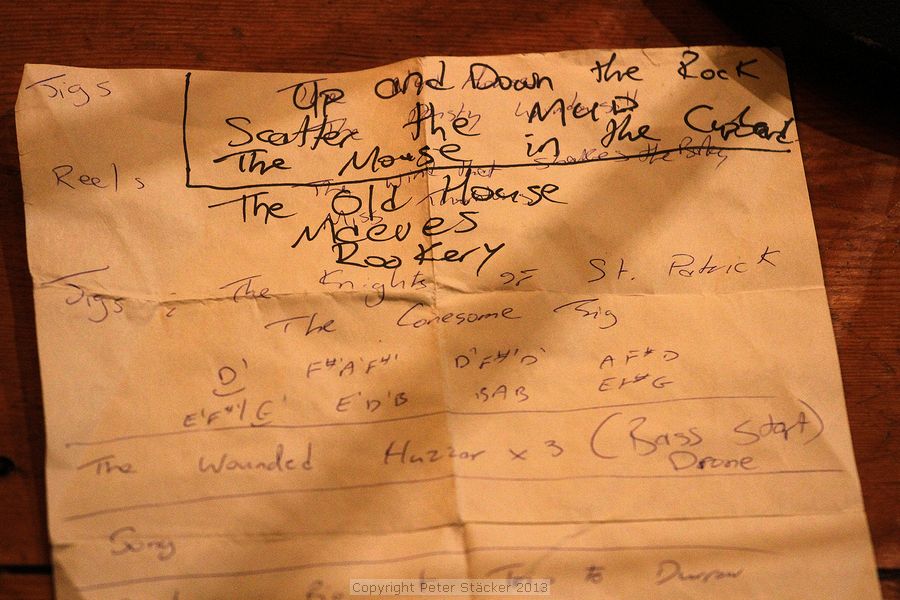 Jigs
Up and Down the Rock
Scatter the MUD
The Mouse in the Cupbard
Reels
The Old House
Maeves
Rookery
Jigs : The Knights of St. Patrick
The Lonesome Jig
D' F#'A'F#' D'F#'D' AF#D
E'F#'/G' E'D'B BAB EF#G
The Wounded Huzzar x 3 (Bass Start)
Drone
Song
to Durrow
Copyright Peter Stäcker 2013